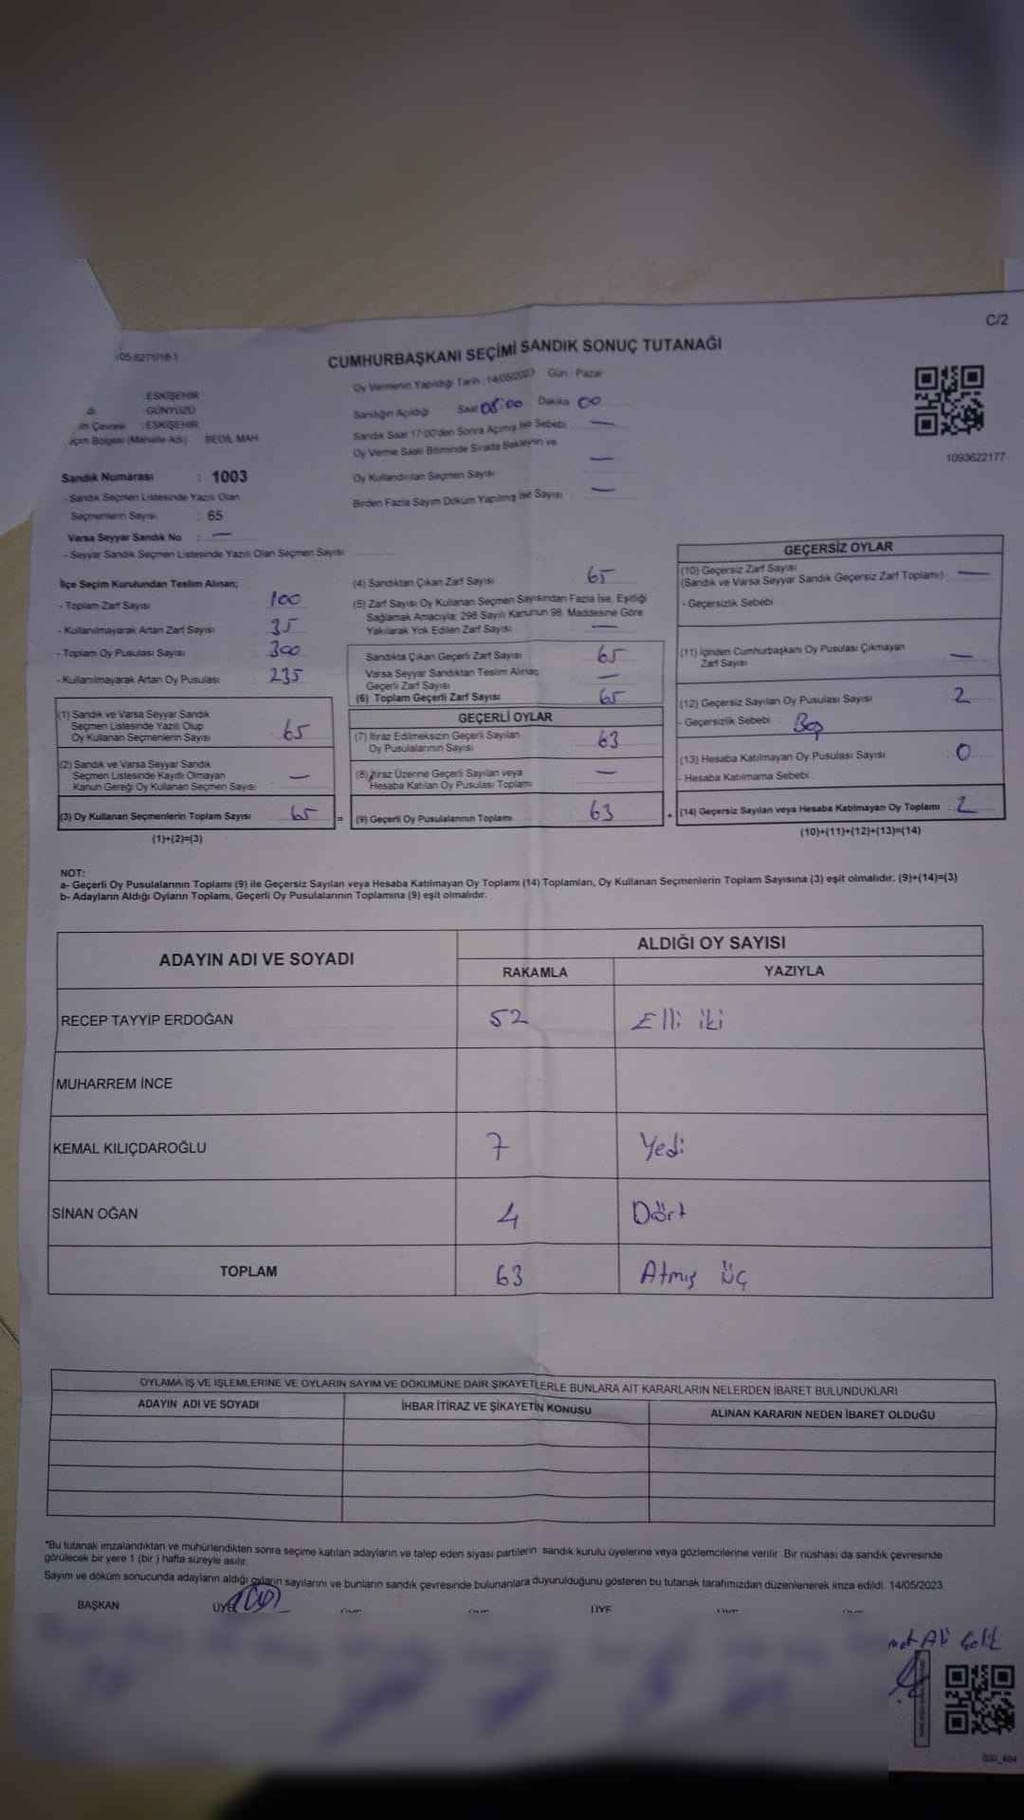 C/2
CUMHURBAŞKANI SEÇİMİ SANDIK SONUÇ TUTANAĞI
Oy Vermenin Yapıldığı Tarih : 14/05/2023 Gün : Pazar
ESKİŞEHİR
GÜNYÜZÜ
in Çevresi : ESKİŞEHİR
Bölgesi (Mahalle Adı) BEDİL MAH.
Sandığın Açıldığı Saat 08:00 Dakika 00
Sandık Saat 17:00'den Sonra Açılmış İse Sebebi —
Oy Verme Saati Bitiminde Sırada Bekleyen ve
Oy Kullandırılan Seçmen Sayısı —
Birden Fazla Sayım Döküm Yapılmış İse Sayısı —
1093622177
Sandık Numarası : 1003
- Sandık Seçmen Listesinde Yazılı Olan
Seçmenlerin Sayısı : 65
Varsa Seyyar Sandık No : —
- Seyyar Sandık Seçmen Listesinde Yazılı Olan Seçmen Sayısı
İlçe Seçim Kurulundan Teslim Alınan;
- Toplam Zarf Sayısı 100
- Kullanılmayarak Artan Zarf Sayısı 35
- Toplam Oy Pusulası Sayısı 300
- Kullanılmayarak Artan Oy Pusulası 235
(1) Sandık ve Varsa Seyyar Sandık
Seçmen Listesinde Yazılı Olup
Oy Kullanan Seçmenlerin Sayısı 65
(2) Sandık ve Varsa Seyyar Sandık
Seçmen Listesinde Kayıtlı Olmayan
Kanun Gereği Oy Kullanan Seçmen Sayısı —
(3) Oy Kullanan Seçmenlerin Toplam Sayısı 65
(1)+(2)=(3)
(4) Sandıktan Çıkan Zarf Sayısı 65
(5) Zarf Sayısı Oy Kullanan Seçmen Sayısından Fazla İse, Eşitliği
Sağlamak Amacıyla; 298 Sayılı Kanunun 98. Maddesine Göre
Yakılarak Yok Edilen Zarf Sayısı —
Sandıkta Çıkan Geçerli Zarf Sayısı 65
Varsa Seyyar Sandıktan Teslim Alınan
Geçerli Zarf Sayısı —
(6) Toplam Geçerli Zarf Sayısı 65
GEÇERLİ OYLAR
(7) İtiraz Edilmeksizin Geçerli Sayılan
Oy Pusulalarının Sayısı 63
(8) İtiraz Üzerine Geçerli Sayılan veya
Hesaba Katılan Oy Pusulası Toplamı —
= (9) Geçerli Oy Pusulalarının Toplamı 63
GEÇERSİZ OYLAR
(10) Geçersiz Zarf Sayısı
(Sandık ve Varsa Seyyar Sandık Geçersiz Zarf Toplamı) —
- Geçersizlik Sebebi
(11) İçinden Cumhurbaşkanı Oy Pusulası Çıkmayan
Zarf Sayısı —
(12) Geçersiz Sayılan Oy Pusulası Sayısı 2
- Geçersizlik Sebebi Boş
(13) Hesaba Katılmayan Oy Pusulası Sayısı 0
- Hesaba Katılmama Sebebi
+ (14) Geçersiz Sayılan veya Hesaba Katılmayan Oy Toplamı 2
(10)+(11)+(12)+(13)=(14)
NOT:
a- Geçerli Oy Pusulalarının Toplamı (9) ile Geçersiz Sayılan veya Hesaba Katılmayan Oy Toplamı (14) Toplamları, Oy Kullanan Seçmenlerin Toplam Sayısına (3) eşit olmalıdır. (9)+(14)=(3)
b- Adayların Aldığı Oyların Toplamı, Geçerli Oy Pusulalarının Toplamına (9) eşit olmalıdır.
ADAYIN ADI VE SOYADI ALDIĞI OY SAYISI
RAKAMLA YAZIYLA
RECEP TAYYİP ERDOĞAN 52 Elli iki
MUHARREM İNCE
KEMAL KILIÇDAROĞLU 7 Yedi
SİNAN OĞAN 4 Dört
TOPLAM 63 Atmış üç
OYLAMA İŞ VE İŞLEMLERİNE VE OYLARIN SAYIM VE DÖKÜMÜNE DAİR ŞİKAYETLERLE BUNLARA AİT KARARLARIN NELERDEN İBARET BULUNDUKLARI
ADAYIN ADI VE SOYADI İHBAR İTİRAZ VE ŞİKAYETİN KONUSU ALINAN KARARIN NEDEN İBARET OLDUĞU
*Bu tutanak imzalandıktan ve mühürlendikten sonra seçime katılan adayların ve talep eden siyasi partilerin sandık kurulu üyelerine veya gözlemcilerine verilir. Bir nüshası da sandık çevresinde
görülecek bir yere 1 (bir) hafta süreyle asılır.
Sayım ve döküm sonucunda adayların aldığı oyların sayılarını ve bunların sandık çevresinde bulunanlara duyurulduğunu gösteren bu tutanak tarafımızdan düzenlenerek imza edildi. 14/05/2023
BAŞKAN ÜYE ÜYE